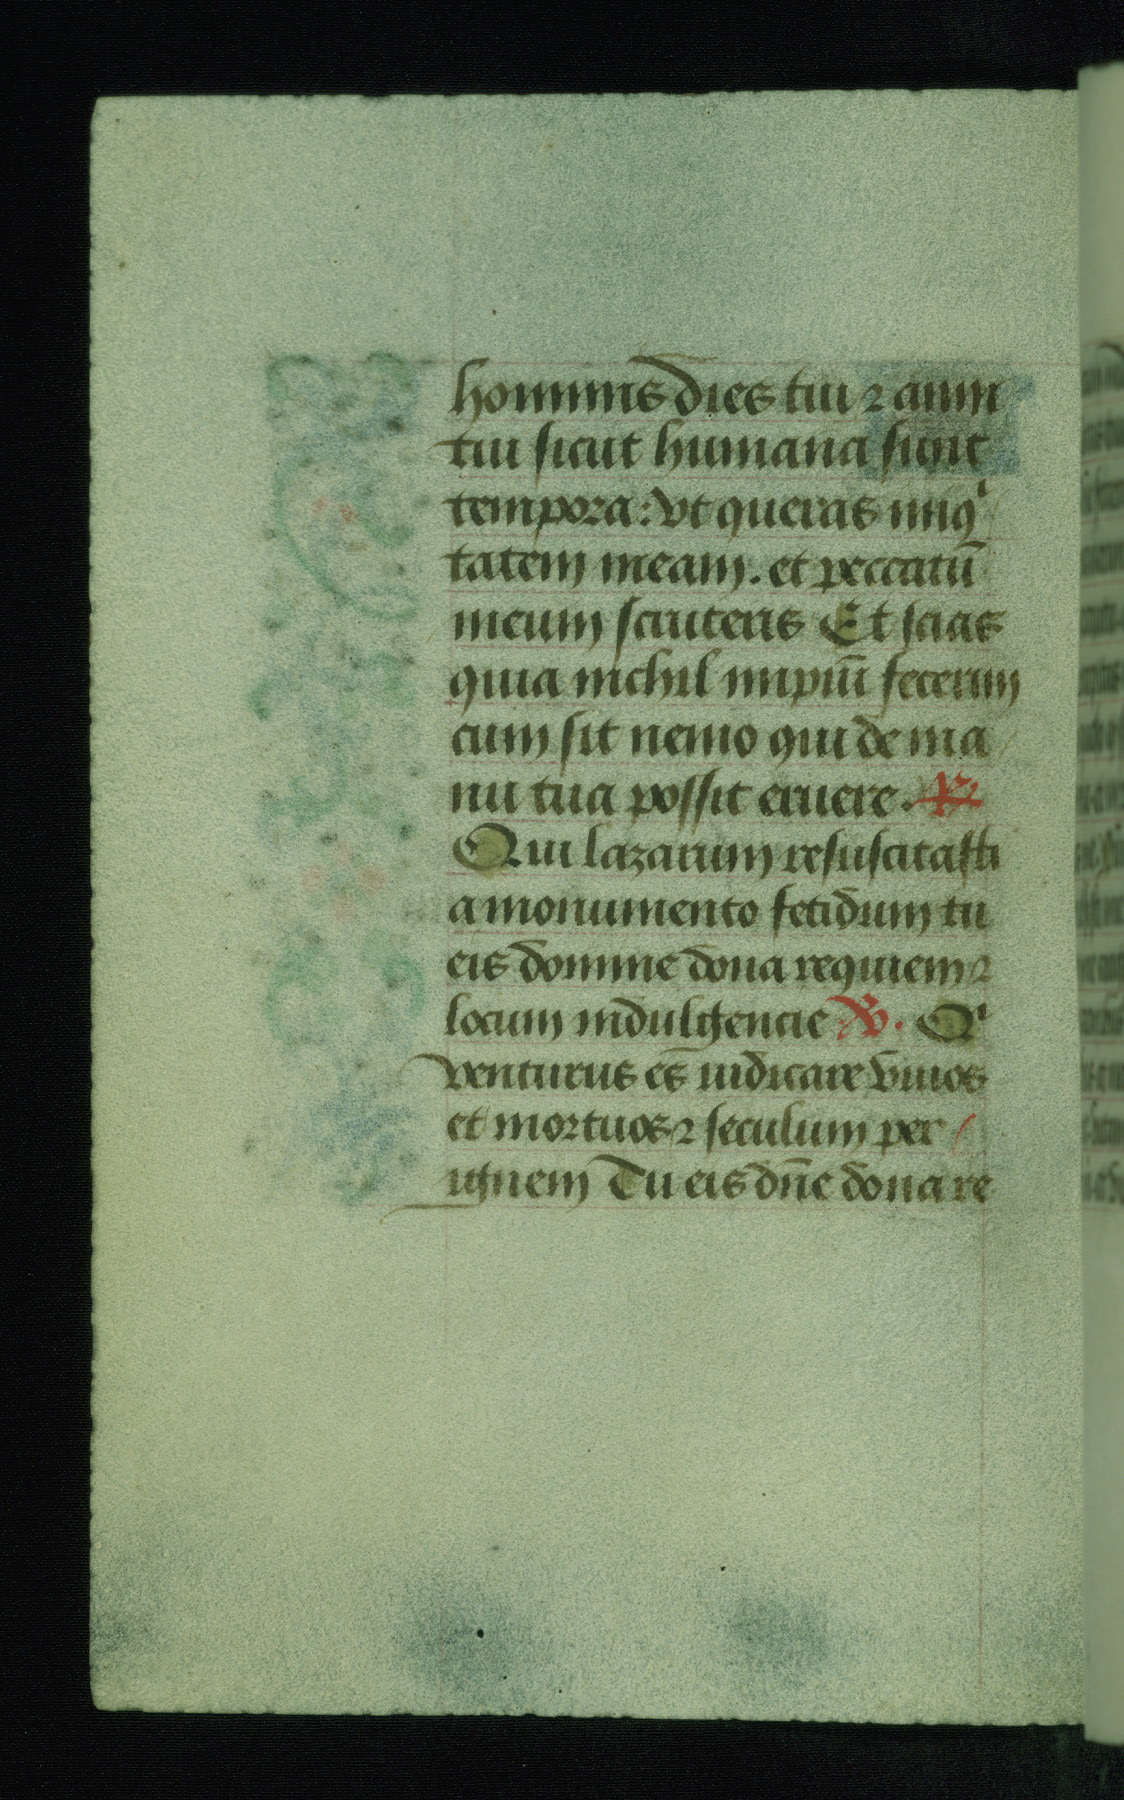 hominis dies tui ⁊ anni
tui sicut humana sunt
tempora: vt queras iniqͥ
tatem meam. et peccatū
meum scruteris Et scias
quia nichil impiū fecerim
cum sit nemo qui de ma
nu tua possit eruere. ℟
Qui lazarum resuscitasti
a monumento fetidum tu
eis domine dona requiem ⁊
locum indulgencie ℣. Qͥ
venturus es̄ iudicare viuos
et mortuos ⁊ seculum per
ignem Tu eis dn̄e dona re